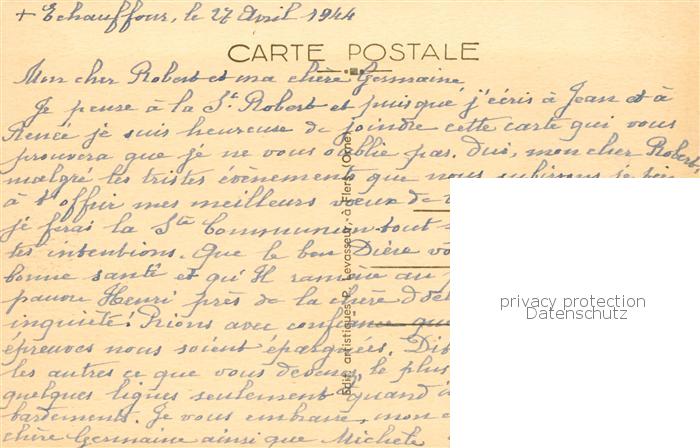 + Echauffour, le 27 Avril 1944
CARTE POSTALE
Mon cher Robert et ma chère Germaine
Je pense à la St Robert et puisque j'écris à Jean et à
Renée je suis heureuse de joindre cette carte qui vous
prouvera que je ne vous oublie pas. Oui, mon cher Robert,
malgré les tristes évènements que nous subissons je
à t'offrir mes meilleurs voeux de
je ferai la Ste Communion tout
tes intentions. Que le bon Dieu vo
bonne santé et qu'Il ramène au
pauvre Henri près de la chère
inquiète! Prions avec confiance que
épreuves nous soient épargnées.
les autres ce que vous devenez, le plus
quelques lignes seulement quand
bardements. Je vous embrasse, mon c
chère Germaine ainsi que Michele
Edit. artistiques P. Levasseur, à Flers (Orne)
privacy protection
Datenschutz